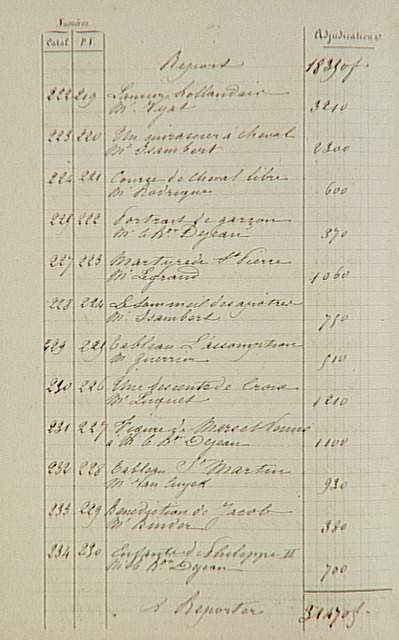 Numéros
Catal P.V. Adjudications
Report 18350f.
222 219 Lancier hollandais
Mr Vyat 3210
223 220 Un cuirassier à cheval
Mr Isambert 2300
224 221 Course de cheval libre
Mr Rodrigue 600
222 Portrait de garçon
Mr le Bon Dejean 370
227 223 Martyre de St Pierre
Mr Legrand 1060
228 224 Le Sommeil des apôtres
Mr Isambert 750
229 225 Tableau L'assomption
Mr Guerrier 510
230 226 Une descente de Croix
Mr Luquet 1210
231 227 Figure de Mars et Vénus
à Mr le Bon Dejean 1100
232 228 Tableau St Martin
Mr Van Cuyck 930
233 229 Bénédiction de Jacob
Mr Binder 380
234 230 Enfants de Philippe II
Mr le Bon Dejean 700
à Reporter 31470f.